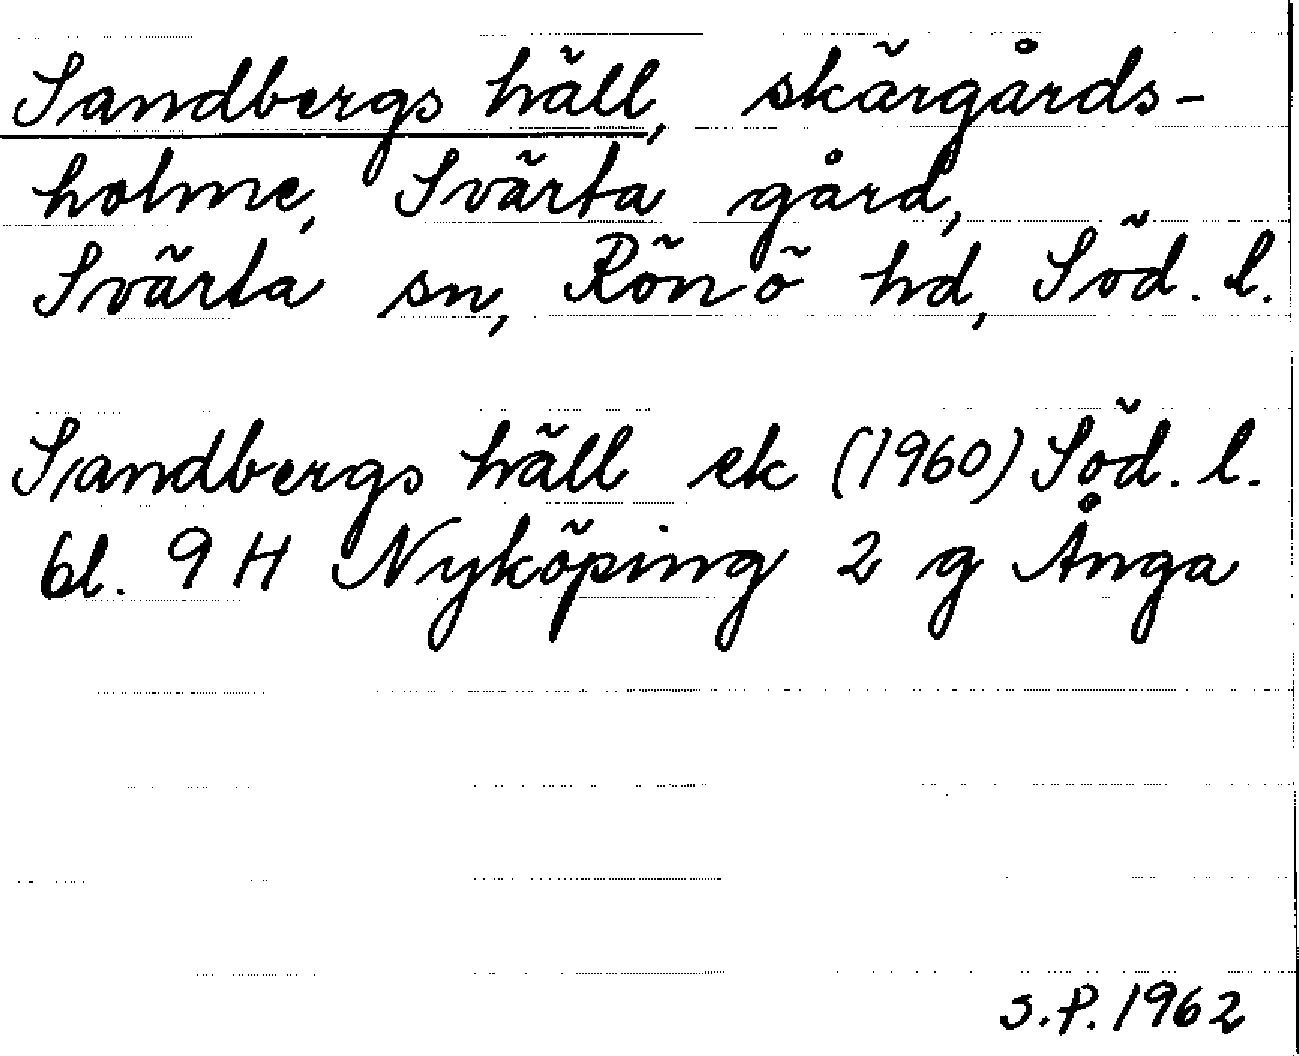 Sandbergs häll, skärgårds-
holme, Svärta gård,
Svärta sn, Rönö hd, Söd. l.
Sandbergs häll ek (1960) Söd. l.
bl. 9 H Nyköping 2 g Ånga
S.P. 1962